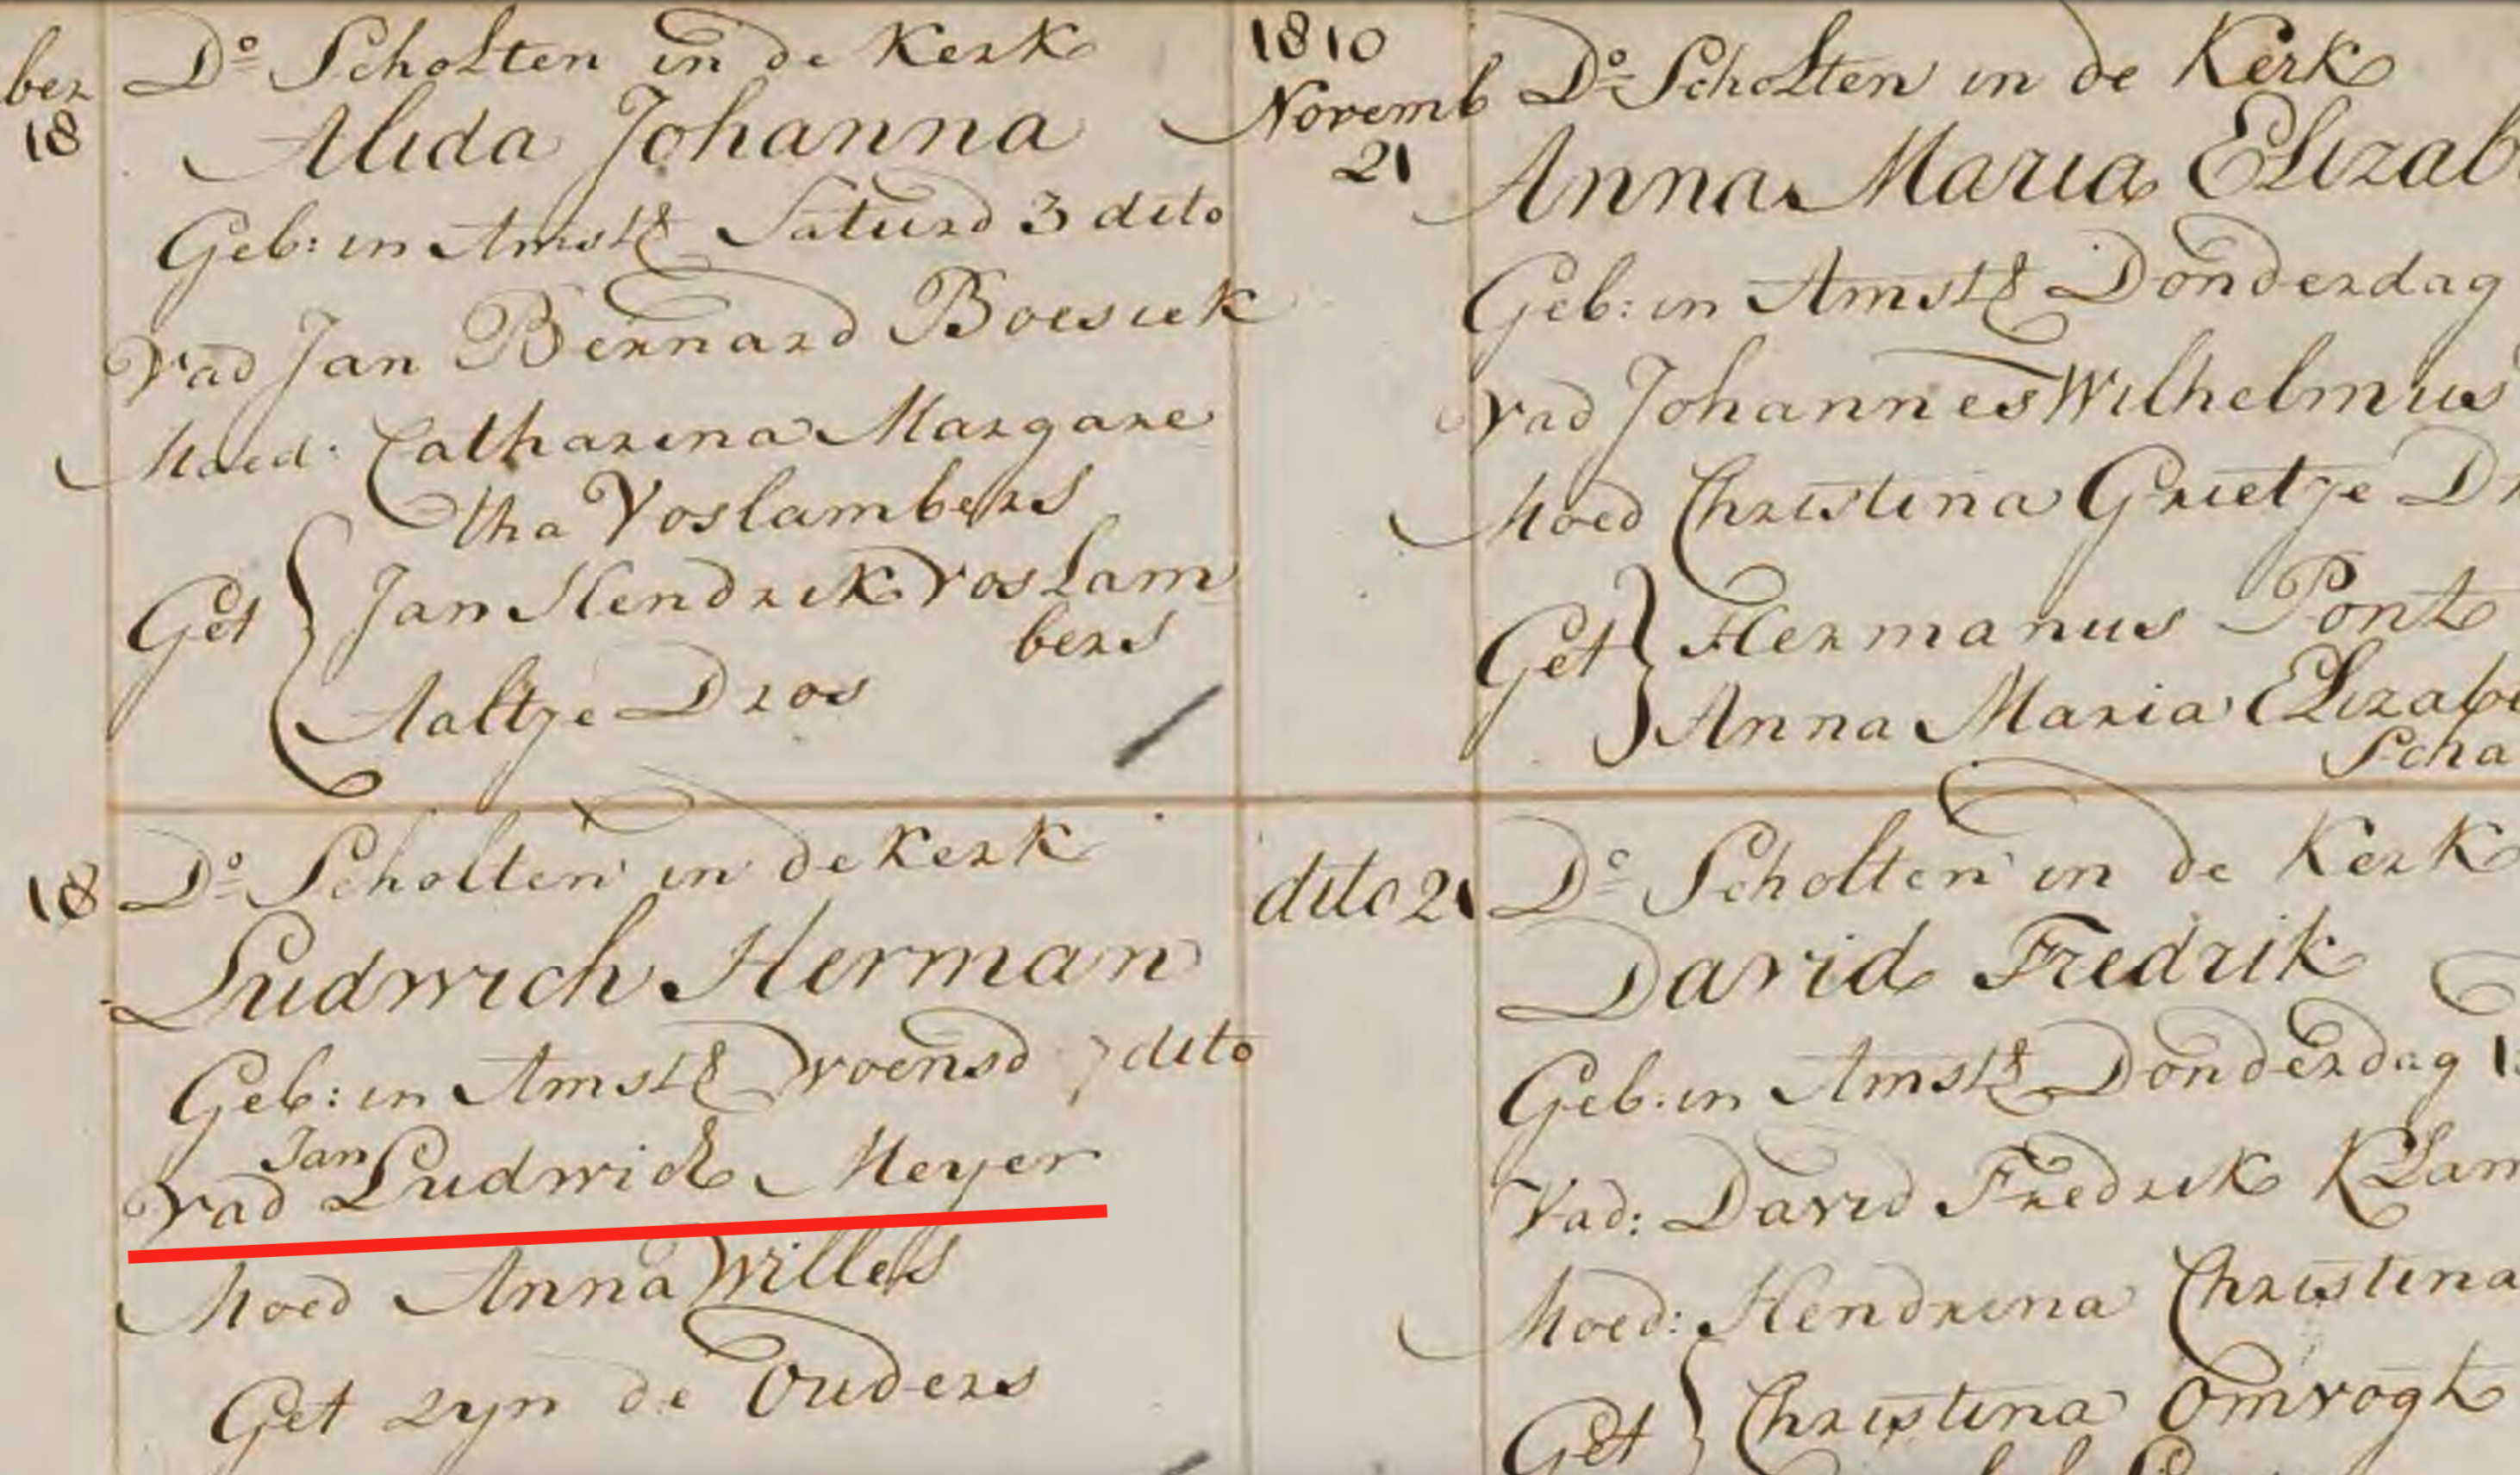 ber
18
Do Scholten in de Kerk
Alida Johanna
Geb: in Amstd Saturd 3 dito
Vad Jan Bernard Boesiek
Moed: Catharina Margare
tha Voslambers
Get Jan Hendrik Voslam
bers
Aaltje Dros
18
Do Scholten in de Kerk
Ludwich Herman
Geb: in Amstd Woensd 7 dito
Jan
Vad Ludwich Meyer
Moed Anna Willes
Get zyn de Ouders
1810
Novemb
21
Do Scholten in de Kerk
Anna Maria Elizab
Geb: in Amstd Donderdag
Vad Johannes Wilhelmus
Moed Christina Grietje D
Get Hermanus Pont
Anna Maria Elizabe
Scha
dito 21
Do Scholten in de Kerk
David Fredrik
Geb: in Amstd Donderdag 1
Vad: David Fredrik Klam
Moed: Hendrina Christina
Get Christina Omvogt